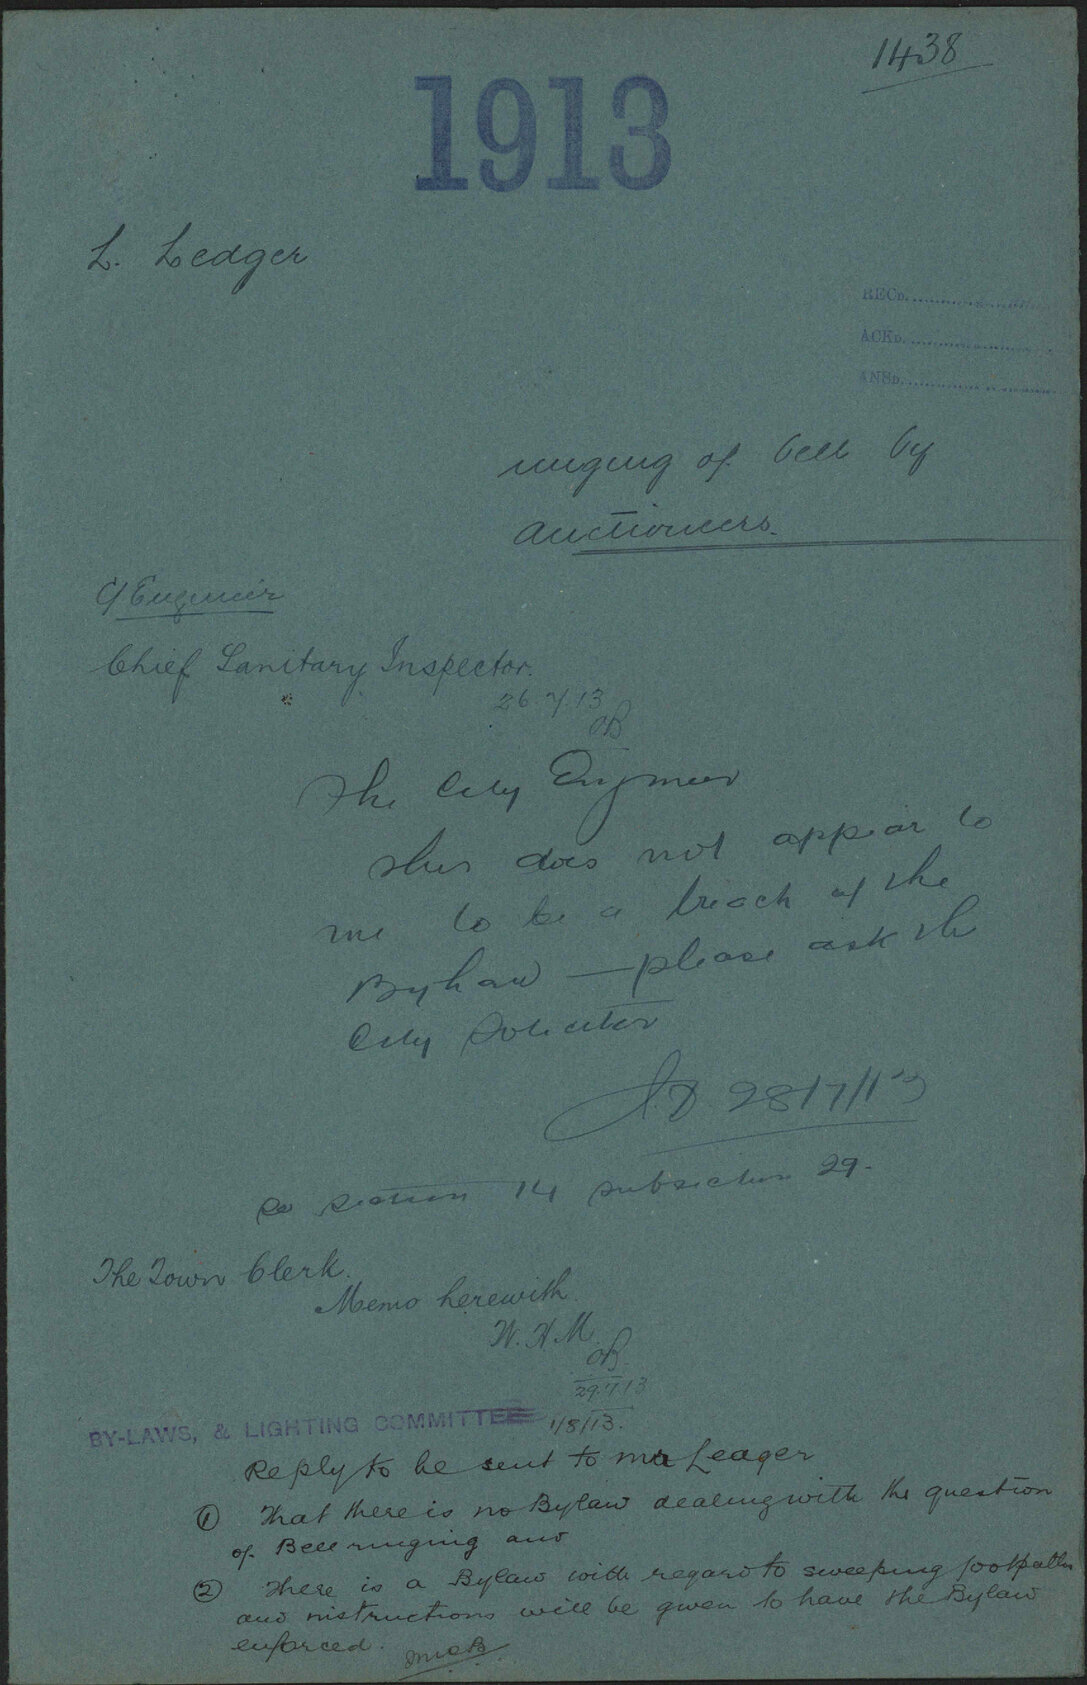 1438
1913
L. Ledger
RECD.
ACKD.
ANSD.
ringing of bell by
Auctioneers.
C/Engineer
Chief Sanitary Inspector.
26 7 13
The City Engineer
This does not appear to
me to be a breach of the
Bylaw — please ask the
City Solicitor
28/7/13
see section 14 subsection 29.
The Town Clerk.
Memo herewith
W. H. M.
29.7.13
BY-LAWS, & LIGHTING COMMITTEE 1/8/13.
Reply to be sent to Mr Ledger
① That there is no Bylaw dealing with the question
of Bell ringing and
② There is a Bylaw with regard to sweeping footpaths
and instructions will be given to have the Bylaw
enforced.